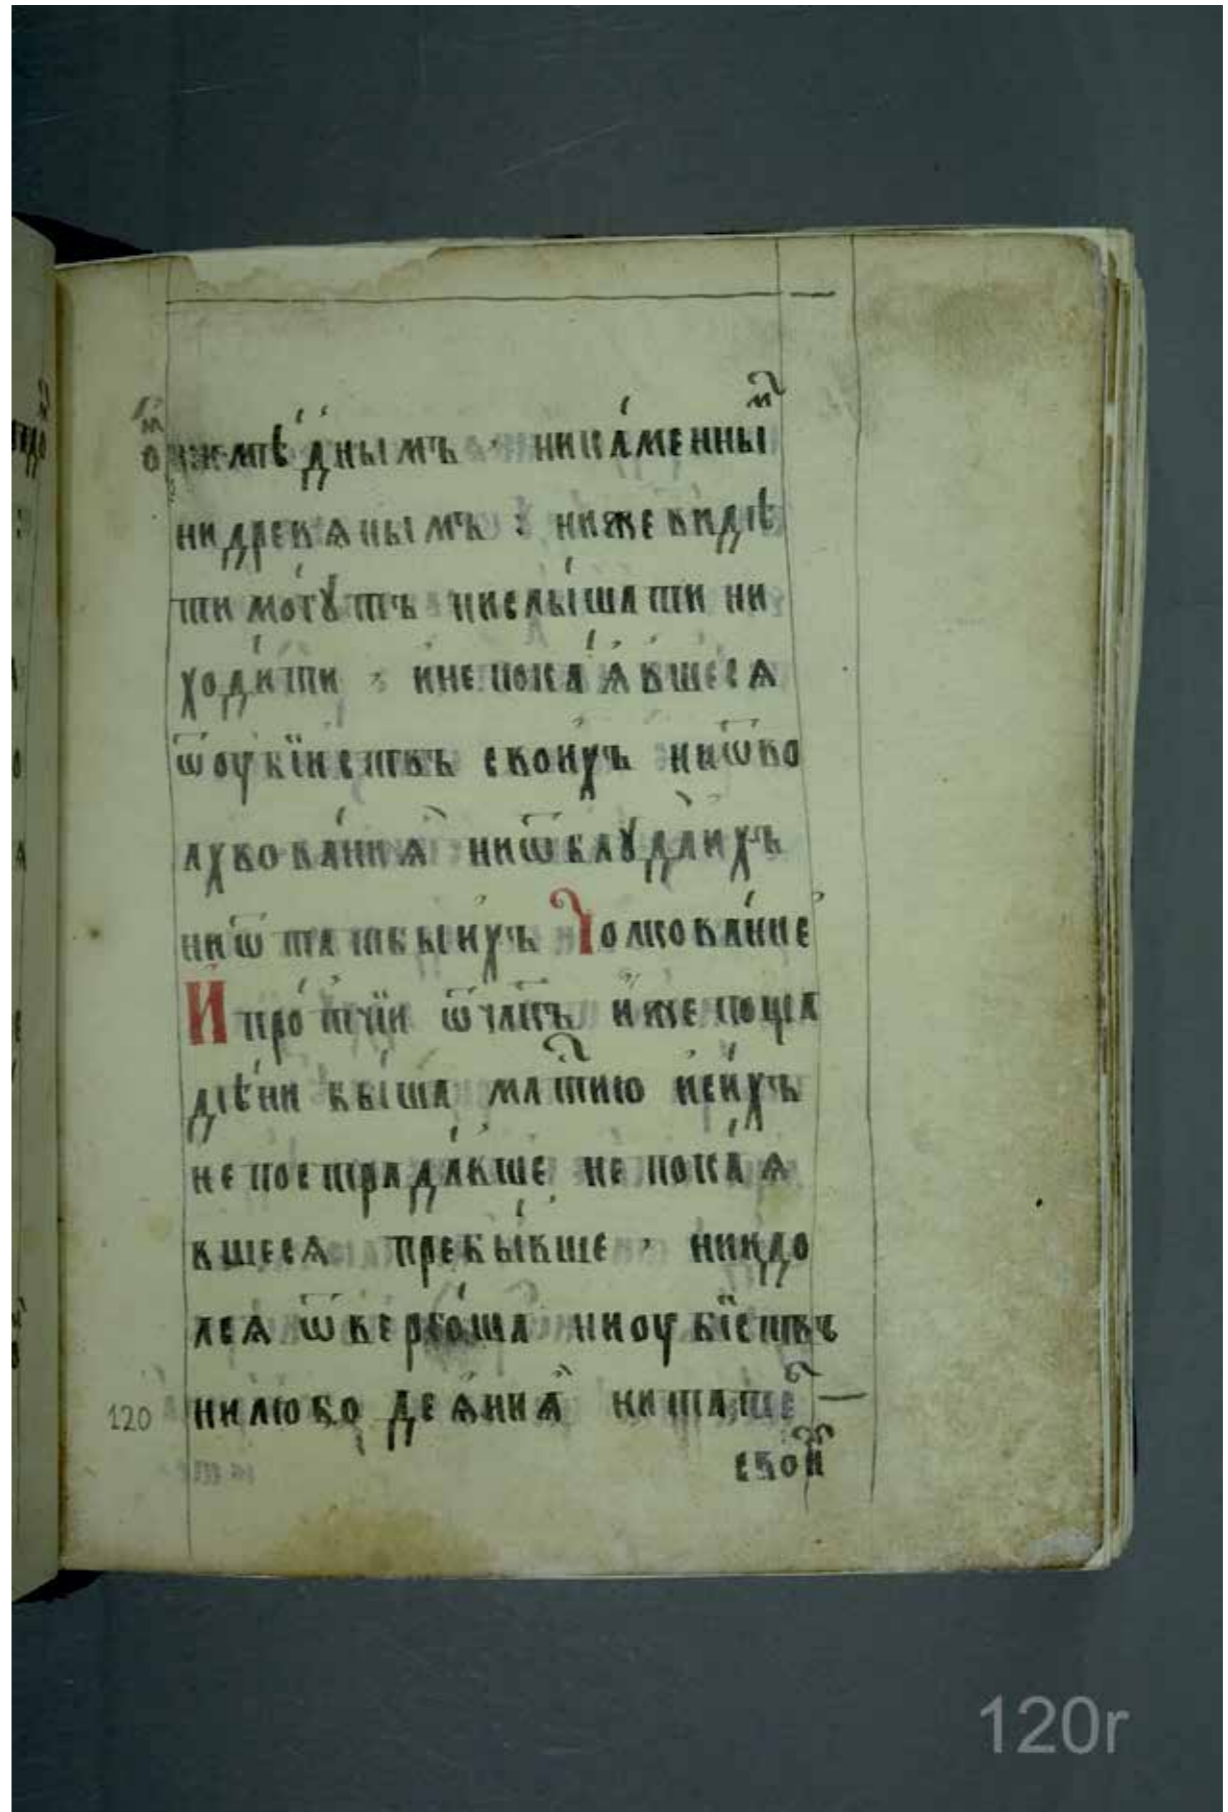 нимѣ́днымъ · нинка́менны
нидревѧнымъ : нижевидѣ
тимо́гꙋтъ нислы́шати ни
ходи́ти , и́непока́ѧвшесѧ
ѿоубїиствъ свои́хъ ниѿво
лхвова́ниꙗ ниѿблꙋда̀ихъ
ниѿ татьбыихъ Толкова́ние
И про́тчїи ѿчл҃къ и́жепоща
дѣ́ни бы́ша млⷭ҇тию и́си́хъ
непострада́вше не пока́ѧ
вшесѧ пребы́вше , ниидо
лсѧ ѿверго́ша ниоубїествъ
нилюбо деѧ́ниѧ̀ нитате
свои
120
120r